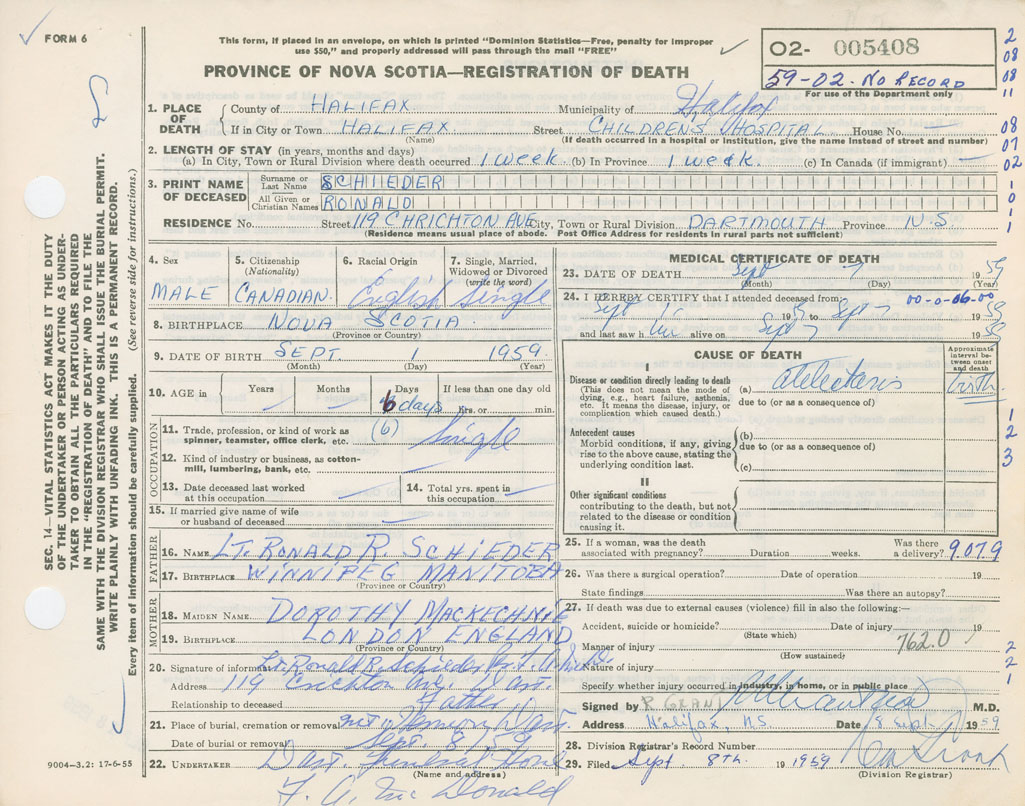 FORM 6
This form, if placed in an envelope, on which is printed "Dominion Statistics—Free, penalty for improper
use $50," and properly addressed will pass through the mail "FREE"
PROVINCE OF NOVA SCOTIA—REGISTRATION OF DEATH
02- 005408
59-02. NO RECORD
For use of the Department only
2
08
08
11
08
07
02
1
0
1
1
SEC. 14—VITAL STATISTICS ACT MAKES IT THE DUTY
OF THE UNDERTAKER OR PERSON ACTING AS UNDER-
TAKER TO OBTAIN ALL THE PARTICULARS REQUIRED
IN THE "REGISTRATION OF DEATH" AND TO FILE THE
SAME WITH THE DIVISION REGISTRAR WHO SHALL ISSUE THE BURIAL PERMIT.
WRITE PLAINLY WITH UNFADING INK. THIS IS A PERMANENT RECORD.
Every item of information should be carefully supplied. (See reverse side for instructions.)
1. PLACE OF DEATH County of HALIFAX Municipality of Halifax
If in City or Town HALIFAX Street CHILDRENS HOSPITAL House No. —
(Name) (If death occurred in a hospital or institution, give the name instead of street and number)
2. LENGTH OF STAY (in years, months and days)
(a) In City, Town or Rural Division where death occurred 1 week (b) In Province 1 week. (c) In Canada (if immigrant) —
3. PRINT NAME OF DECEASED Surname or Last Name SCHIEDER
All Given or Christian Names RONALD
RESIDENCE No. Street 119 CHRICHTON AVE City, Town or Rural Division DARTMOUTH Province N.S
(Residence means usual place of abode. Post Office Address for residents in rural parts not sufficient)
4. Sex MALE
5. Citizenship (Nationality) CANADIAN.
6. Racial Origin English
7. Single, Married, Widowed or Divorced (write the word) Single
8. BIRTHPLACE NOVA SCOTIA.
(Province or Country)
9. DATE OF BIRTH SEPT. 1 1959.
(Month) (Day) (Year)
10. AGE in Years — Months — Days 6 days If less than one day old Hrs. or min.
(6)
OCCUPATION
11. Trade, profession, or kind of work as spinner, teamster, office clerk, etc. Single
12. Kind of industry or business, as cotton-mill, lumbering, bank, etc. —
13. Date deceased last worked at this occupation —
14. Total yrs. spent in this occupation —
15. If married give name of wife or husband of deceased —
FATHER
16. NAME LT. RONALD R. SCHIEDER
17. BIRTHPLACE WINNIPEG MANITOBA
(Province or Country)
MOTHER
18. MAIDEN NAME DOROTHY MACKECHNIE
19. BIRTHPLACE LONDON ENGLAND
(Province or Country)
20. Signature of informant Lt. Ronald R. Schieder
Address 119 Crichton Ave, Dart.
Relationship to deceased Father
21. Place of burial, cremation or removal Mt Hermon, Dart.
Date of burial or removal Sept. 8/59
22. UNDERTAKER Dart. Funeral Home
(Name and address)
F. A. Mc Donald
9004—3.2: 17-6-55
MEDICAL CERTIFICATE OF DEATH
23. DATE OF DEATH Sept 7 1959
(Month) (Day) (Year)
24. I HEREBY CERTIFY that I attended deceased from 00-0-06-00
Sept 1 1959 to Sept 7 1959
and last saw him alive on Sept 7 1959
CAUSE OF DEATH
Approximate interval between onset and death
I
Disease or condition directly leading to death
(This does not mean the mode of dying, e.g., heart failure, asthenia, etc. It means the disease, injury, or complication which caused death.)
(a) Atelectasis birth
due to (or as a consequence of)
Antecedent causes
Morbid conditions, if any, giving rise to the above cause, stating the underlying condition last.
(b)
due to (or as a consequence of)
(c)
II
Other significant conditions
contributing to the death, but not related to the disease or condition causing it.
1
2
3
25. If a woman, was the death associated with pregnancy? Duration weeks. Was there a delivery? 9.079
26. Was there a surgical operation? Date of operation 19
State findings Was there an autopsy?
27. If death was due to external causes (violence) fill in also the following:—
Accident, suicide or homicide? Date of injury 19
(State which)
762.0
Manner of injury
(How sustained)
Nature of injury
Specify whether injury occurred in industry, in home, or in public place
2
2
1
Signed by R GRANT M.D.
Address Halifax, N.S Date 8 Sept 1959
28. Division Registrar's Record Number
29. Filed Sept. 8th. 1959
(Division Registrar)